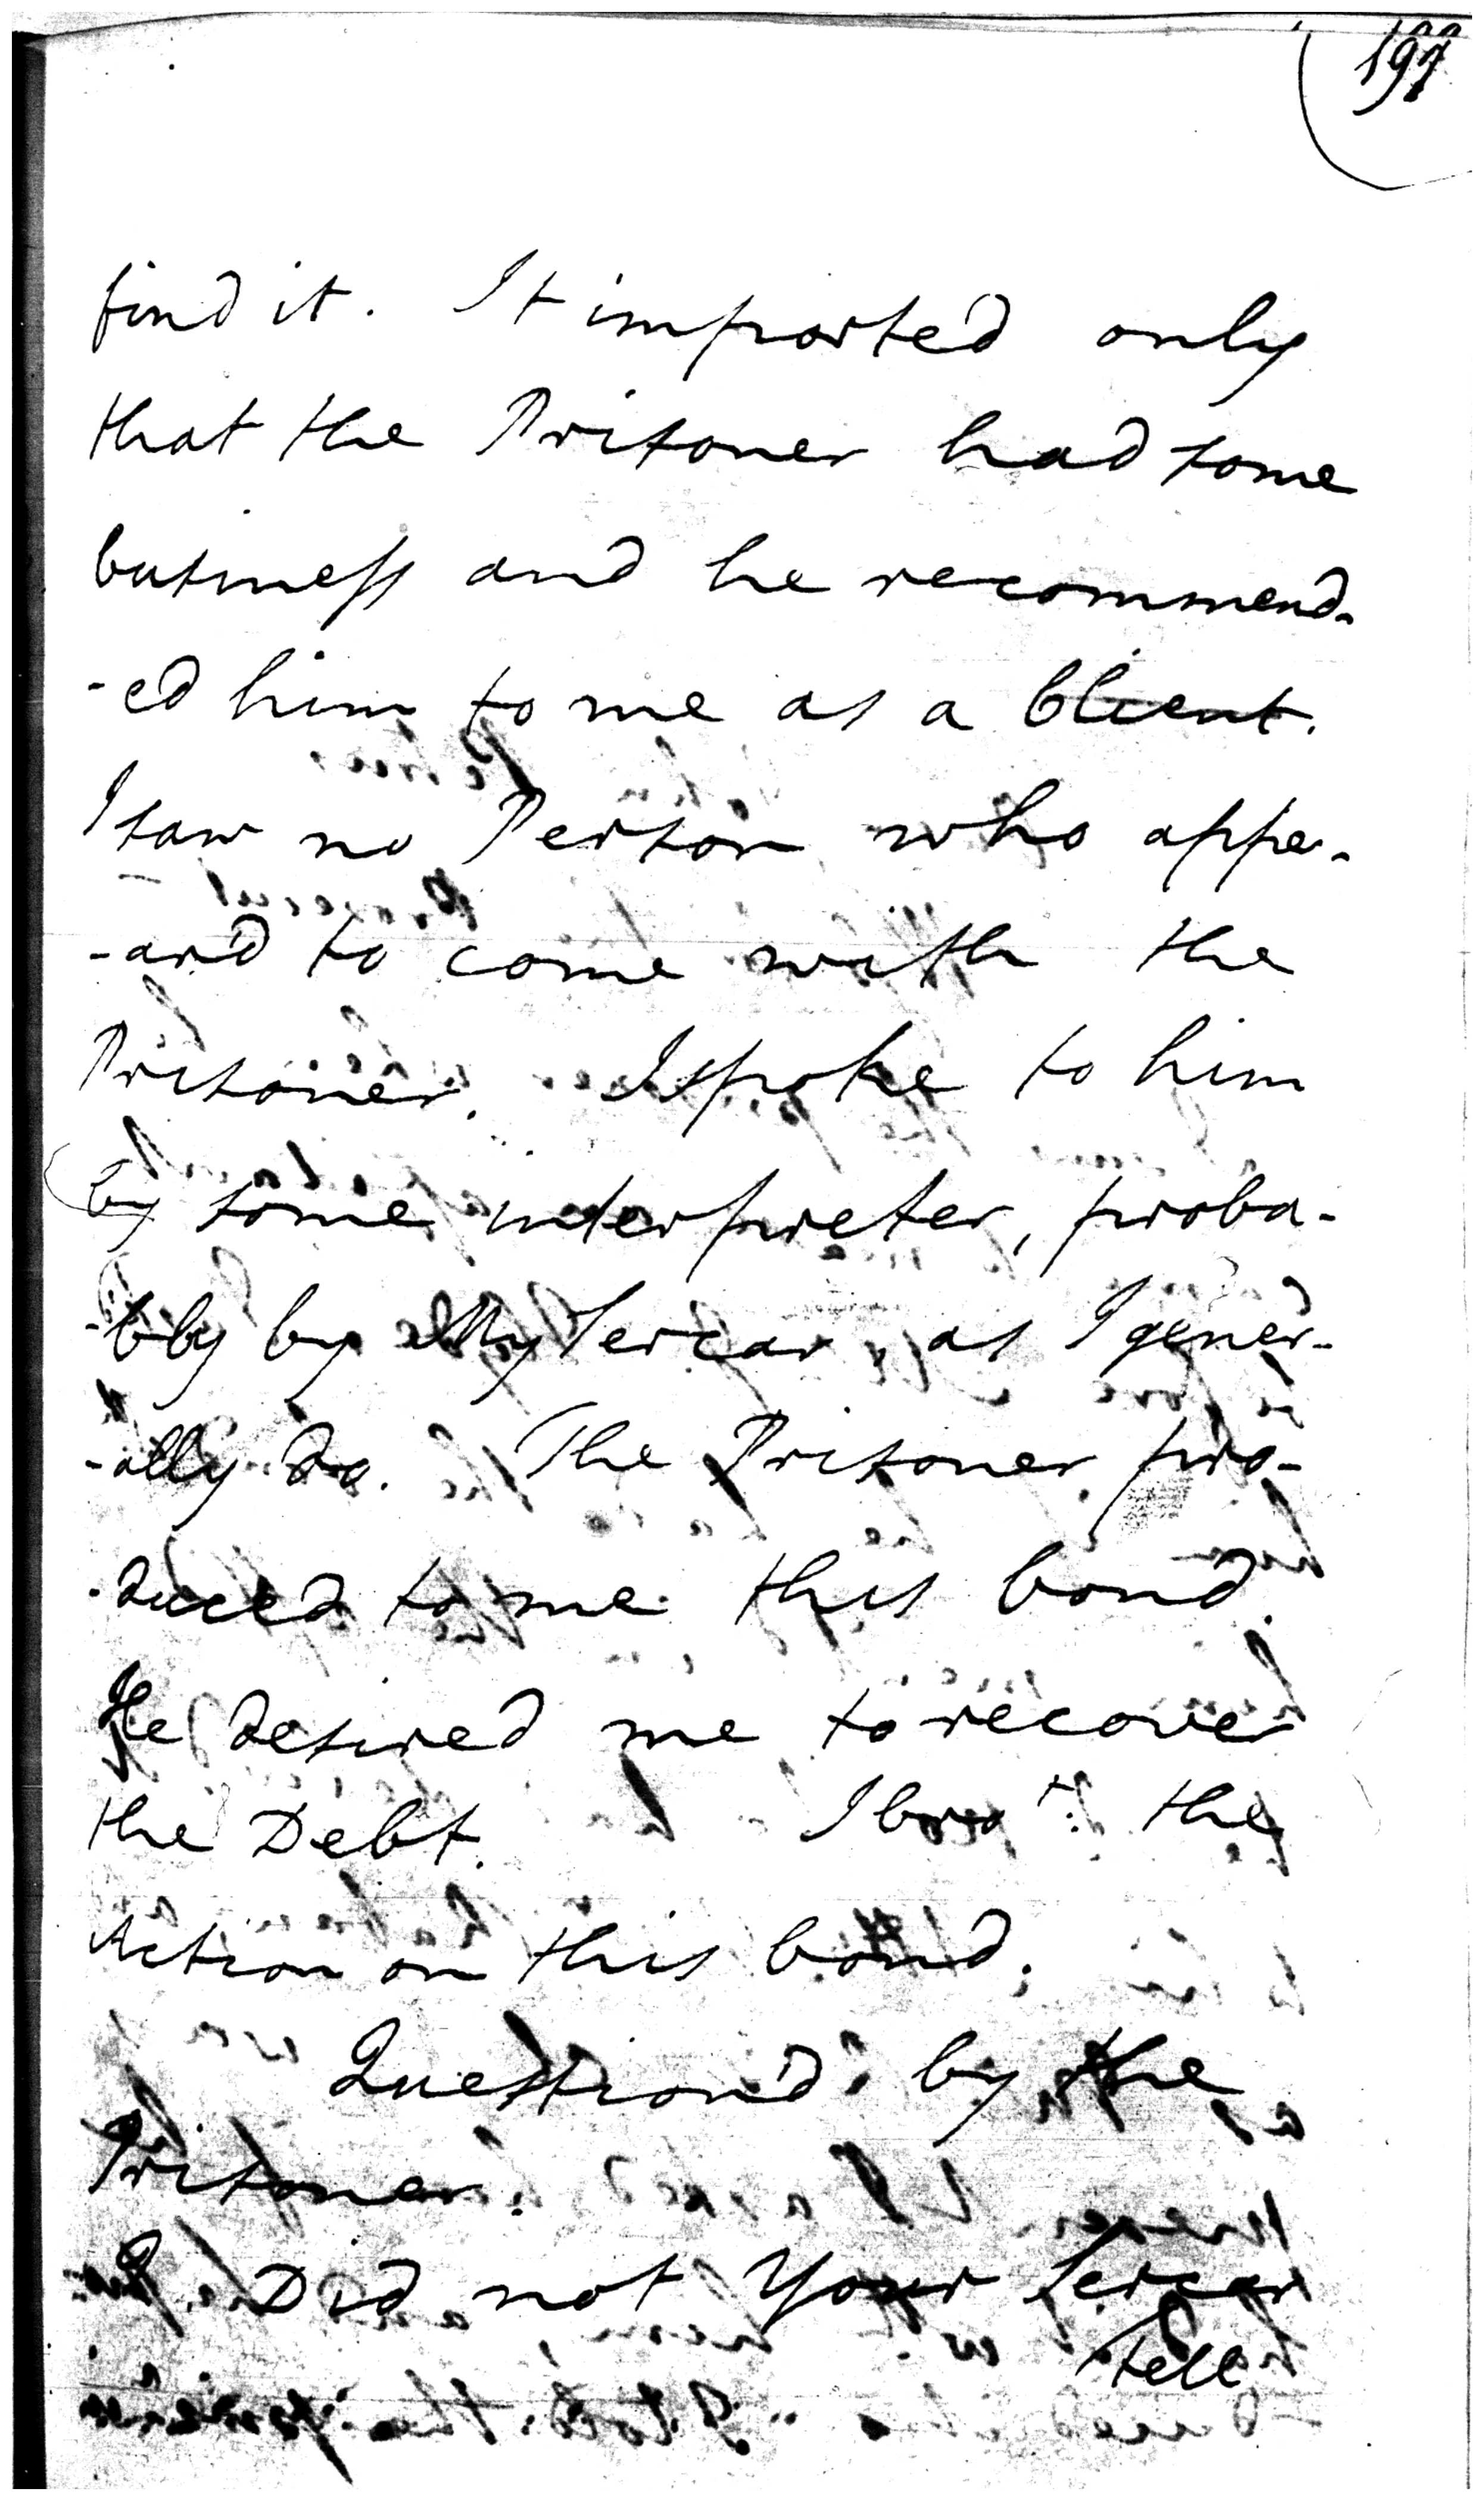 197
find it. It imported only
that the Prisoner had some
business and he recommend-
-ed him to me as a Client.
I saw no Person who appe-
-ard to come with the
Prisoner. I spoke to him
by some interpreter, proba-
-bly by My Sercar, as I gener-
-ally do. The Prisoner pro-
-duced to me this bond.
He desired me to recover
the Debt. I bro.t the
Action on this bond.
Question'd by the
Prisoner.
Q Did not Your Sercar
tell